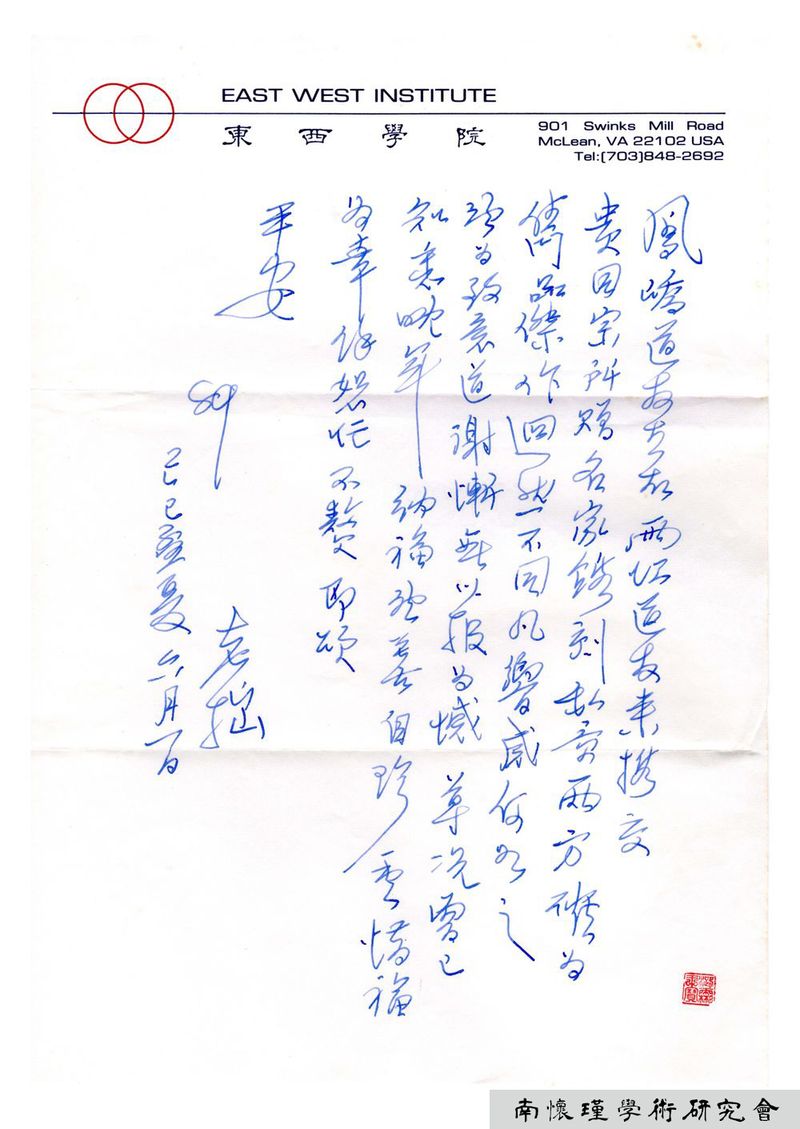 EAST WEST INSTITUTE
東西學院
901 Swinks Mill Road
McLean, VA 22102 USA
Tel:(703)848-2692
鳳嶠道友 兩位道友來携交
貴同宗所贈名家鐫刻私章兩方 確為
雋品傑作 迥然不同凡響 感何如之
頌為致意道謝 慚無以報為憾 草況曾已
知悉 晚年 納福 善自珍重 惜福
為幸 餘恕忙不贅 即頌
平安
老拙
己巳 夏六月一日
南懷瑾學術研究會